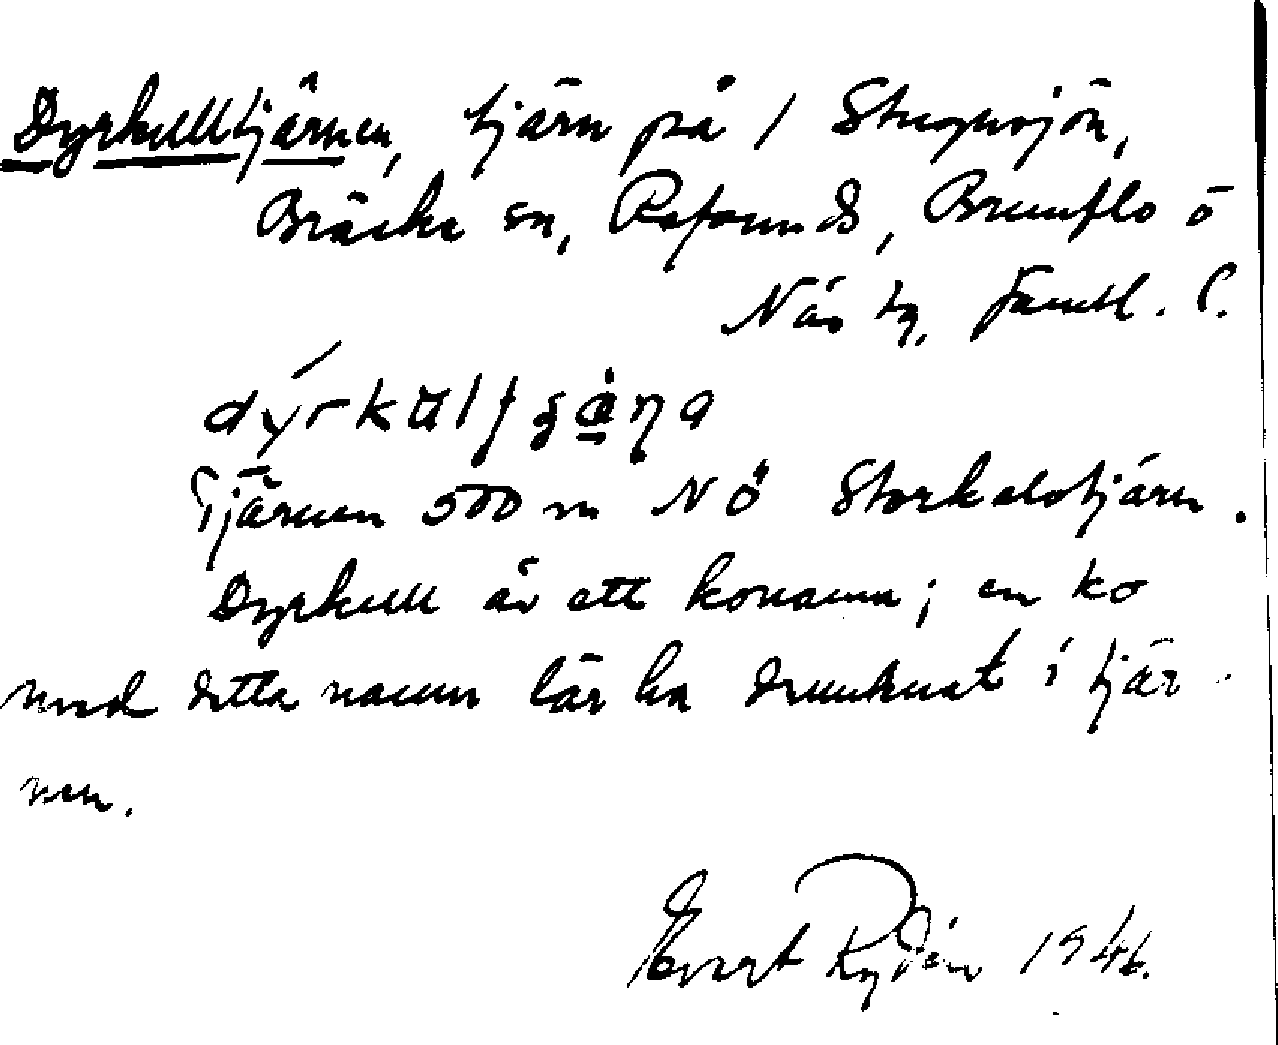 Dyrkulltjärnen, tjärn på 1 Stugusjön,
Bräcke sn, Refsunds, Brunflo o
Näs tg, Jämtl. l.
Tjärnen 500 m NÖ Storkalstjärn.
Dyrkull är ett konamn; en ko
med detta namn lär ha drunknat i tjär-
nen.
Evert Rydén 1946.